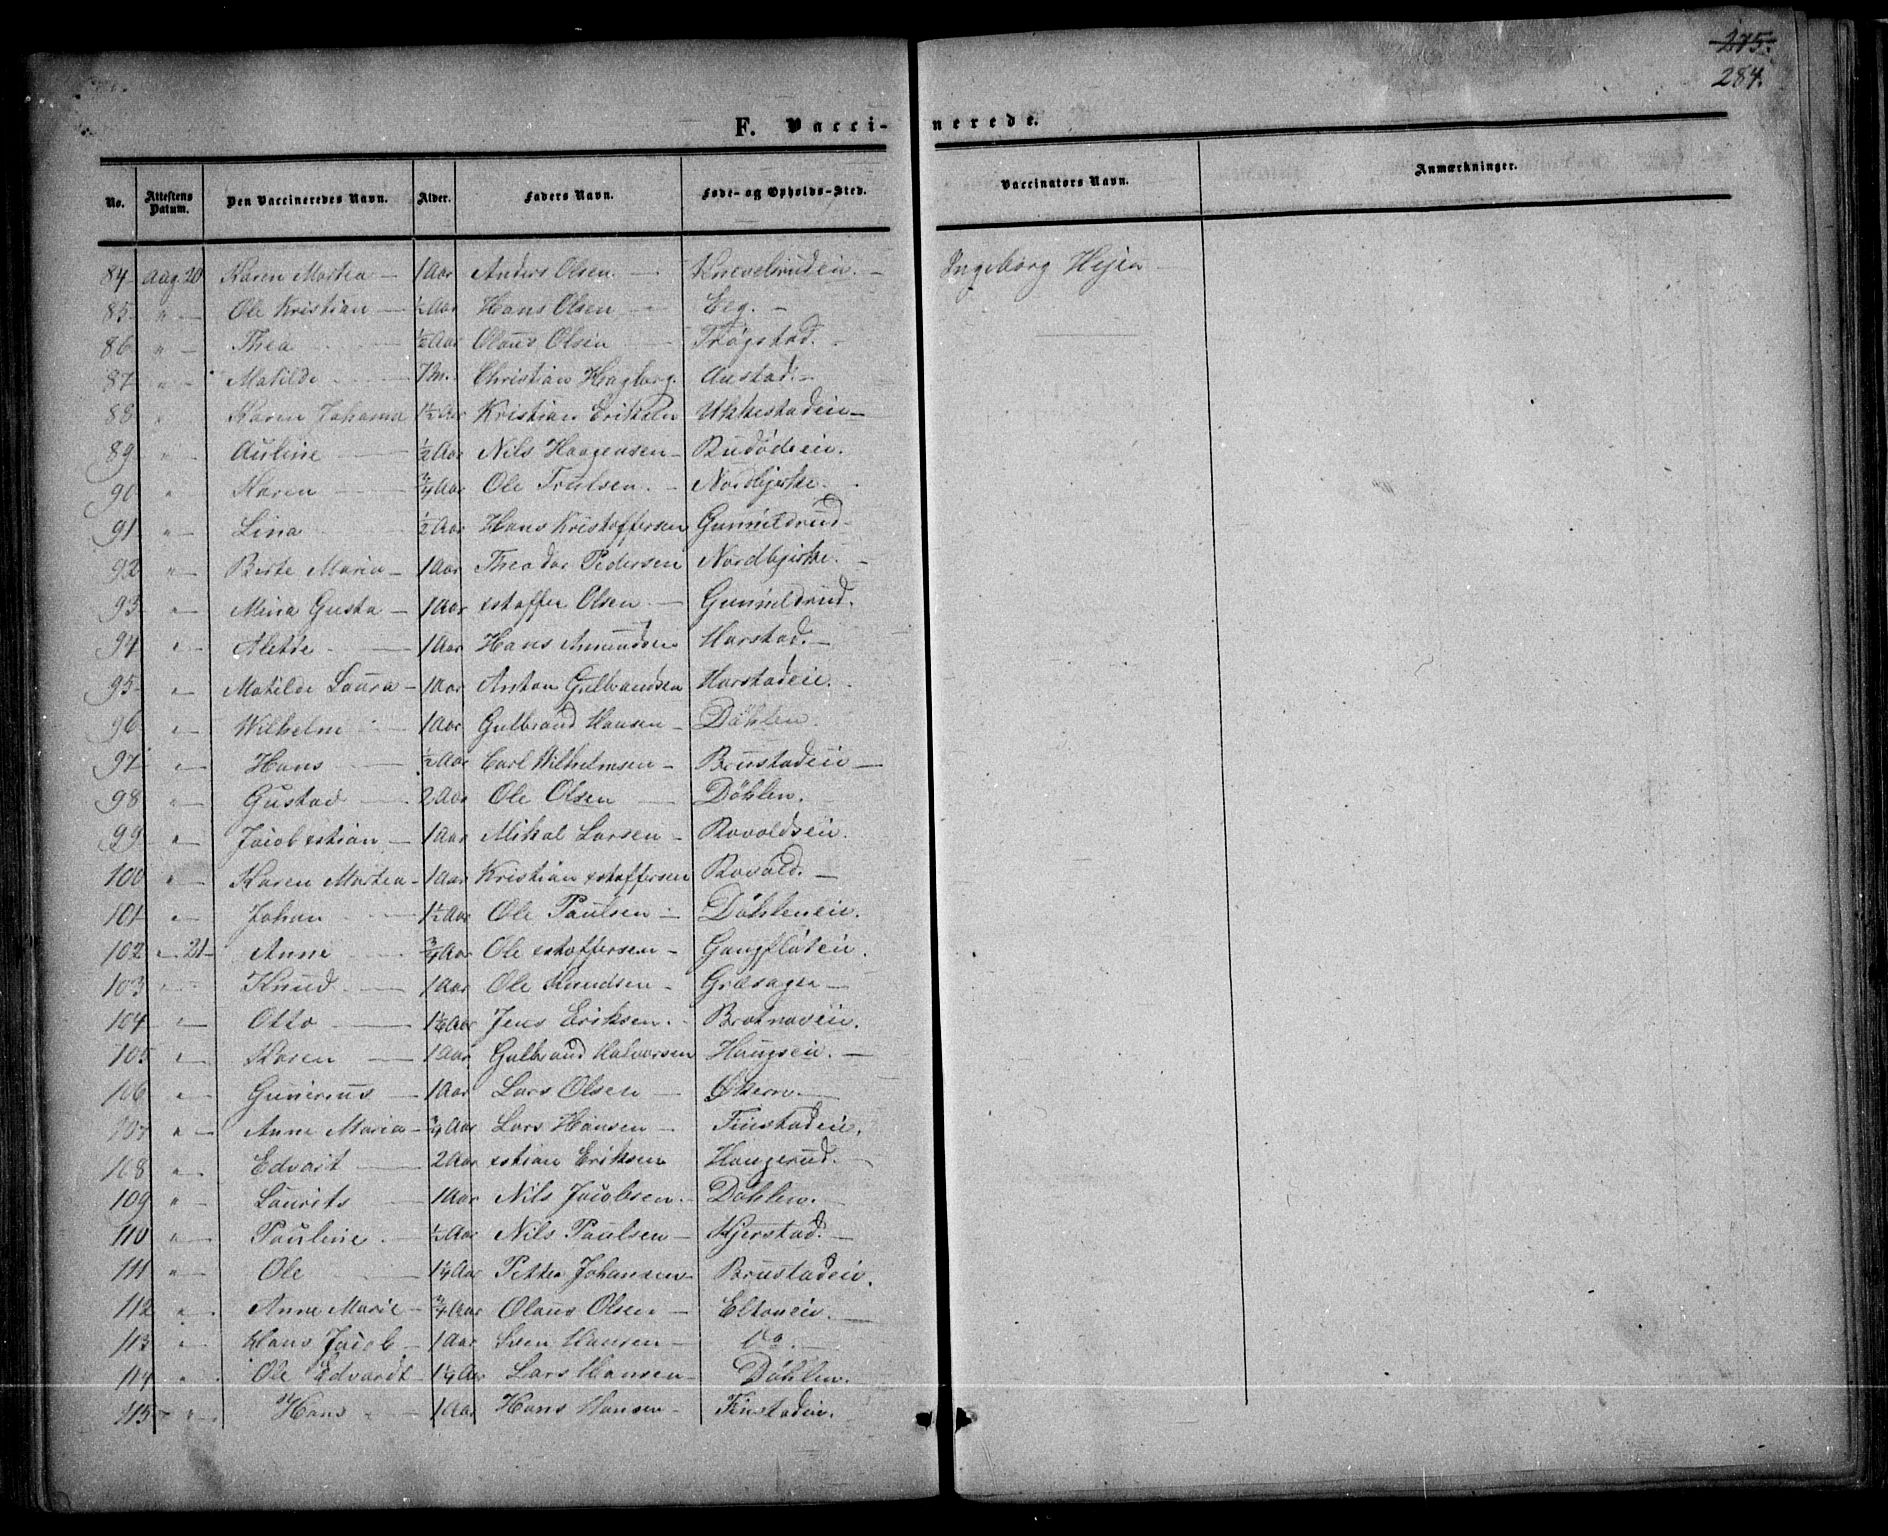 275.
284.
F. Vaccinerede.
No. Attestens Datum. Den Vaccineredes Navn. Alder. Faders Navn. Føde- og Opholds-Sted. Vaccinators Navn. Anmærkninger.
84 Aug. 20 Karen Martea — 1 Aar Anders Olsen. — Knevelsrudeie. — Ingeborg Hejea
85 " — Ole Kristian — ½ Aar Hans Olsen — Eeg. —
86 " — Thea — ½ Aar Olaus Olsen — Frøgstad. —
87 " — Matilde — 7 M. Christian Hagborg. Austad. —
88 " Karen Johanne 1½ Aar Kristian Eriksen Ukkestadeie —
89 " — Auline — ½ Aar Nils Haagensen — Rudødeeie.
90 " — Karen — ¾ Aar Ole Trulsen. — Nordbjirke. —
91 " — Lina ½ Aar Hans Kristoffersen Gunnildrud —
92 " — Berte Maria — 1 Aar Theodor Pedersen Nordbjirke. —
93 " — Mina Gusta — 1 Aar xstoffer Olsen — Gunnildrud.
94 " — Alette — 1 Aar Hans Amundsen Harstad. —
95 " — Matilde Laura — 1 Aar Anton Gulbrandsen Harstadeie.
96 " — Wilhelm — 1 Aar Gulbrand Hansen — Döhlen.
97 " — Hans — ½ Aar Carl Wilhelmsen — Brustadeie —
98 " — Gustav — 2 Aar Ole Olsen — Döhlen.
99 " — Jacob xstian — 1 Aar Mikal Larsen — Rovoldseie.
100 " — Karen Martea — 1 Aar Kristian xstoffersen Rovold. —
101 " — Johan — 1½ Aar Ole Paulsen — Döhleneie.
102 " 21 — Anne — ¾ Aar Ole xstoffersen — Gangfløteie.
103 " — Knud — 1 Aar Ole Knudsen — Græsager —
104 " — Otto — 1½ Aar Jens Eriksen. — Brotnoveie.
105 " — Karen — 1 Aar Gulbrand Halvorsen Haugseie. —
106 " — Gunerius — 1 Aar Lars Olsen — Økern. —
107 " — Anne Maria — ¾ Aar Lars Hansen — Finstadeie.
108 " — Edvart — 2 Aar xstian Eriksen Haugerud. —
109 " — Laurits — 1 Aar Nils Jacobsen — Döhlen. —
110 " — Pauline — ½ Aar Nils Paulsen — Kjerstad. —
111 " — Ole — 1¼ Aar Petter Johansen — Brustadeie.
112 " — Anne Marie — ¾ Aar Olaus Olsen — Eltoneie. —
113 " — Hans Jacob — 1 Aar Sven Hansen — Do. —
114 " — Ole Edvardt — 1¼ Aar Lars Hansen — Döhlen.
115 " — Hans — 1 Aar Hans Hansen — Finstadeie.